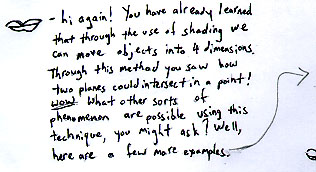 - hi again! You have already learned
that through the use of shading we
can move objects into 4 dimensions.
Through this method you saw how
two planes could intersect in a point!
wow! What other sorts of
phenomenon are possible using this
technique, you might ask? Well,
here are a few more examples.